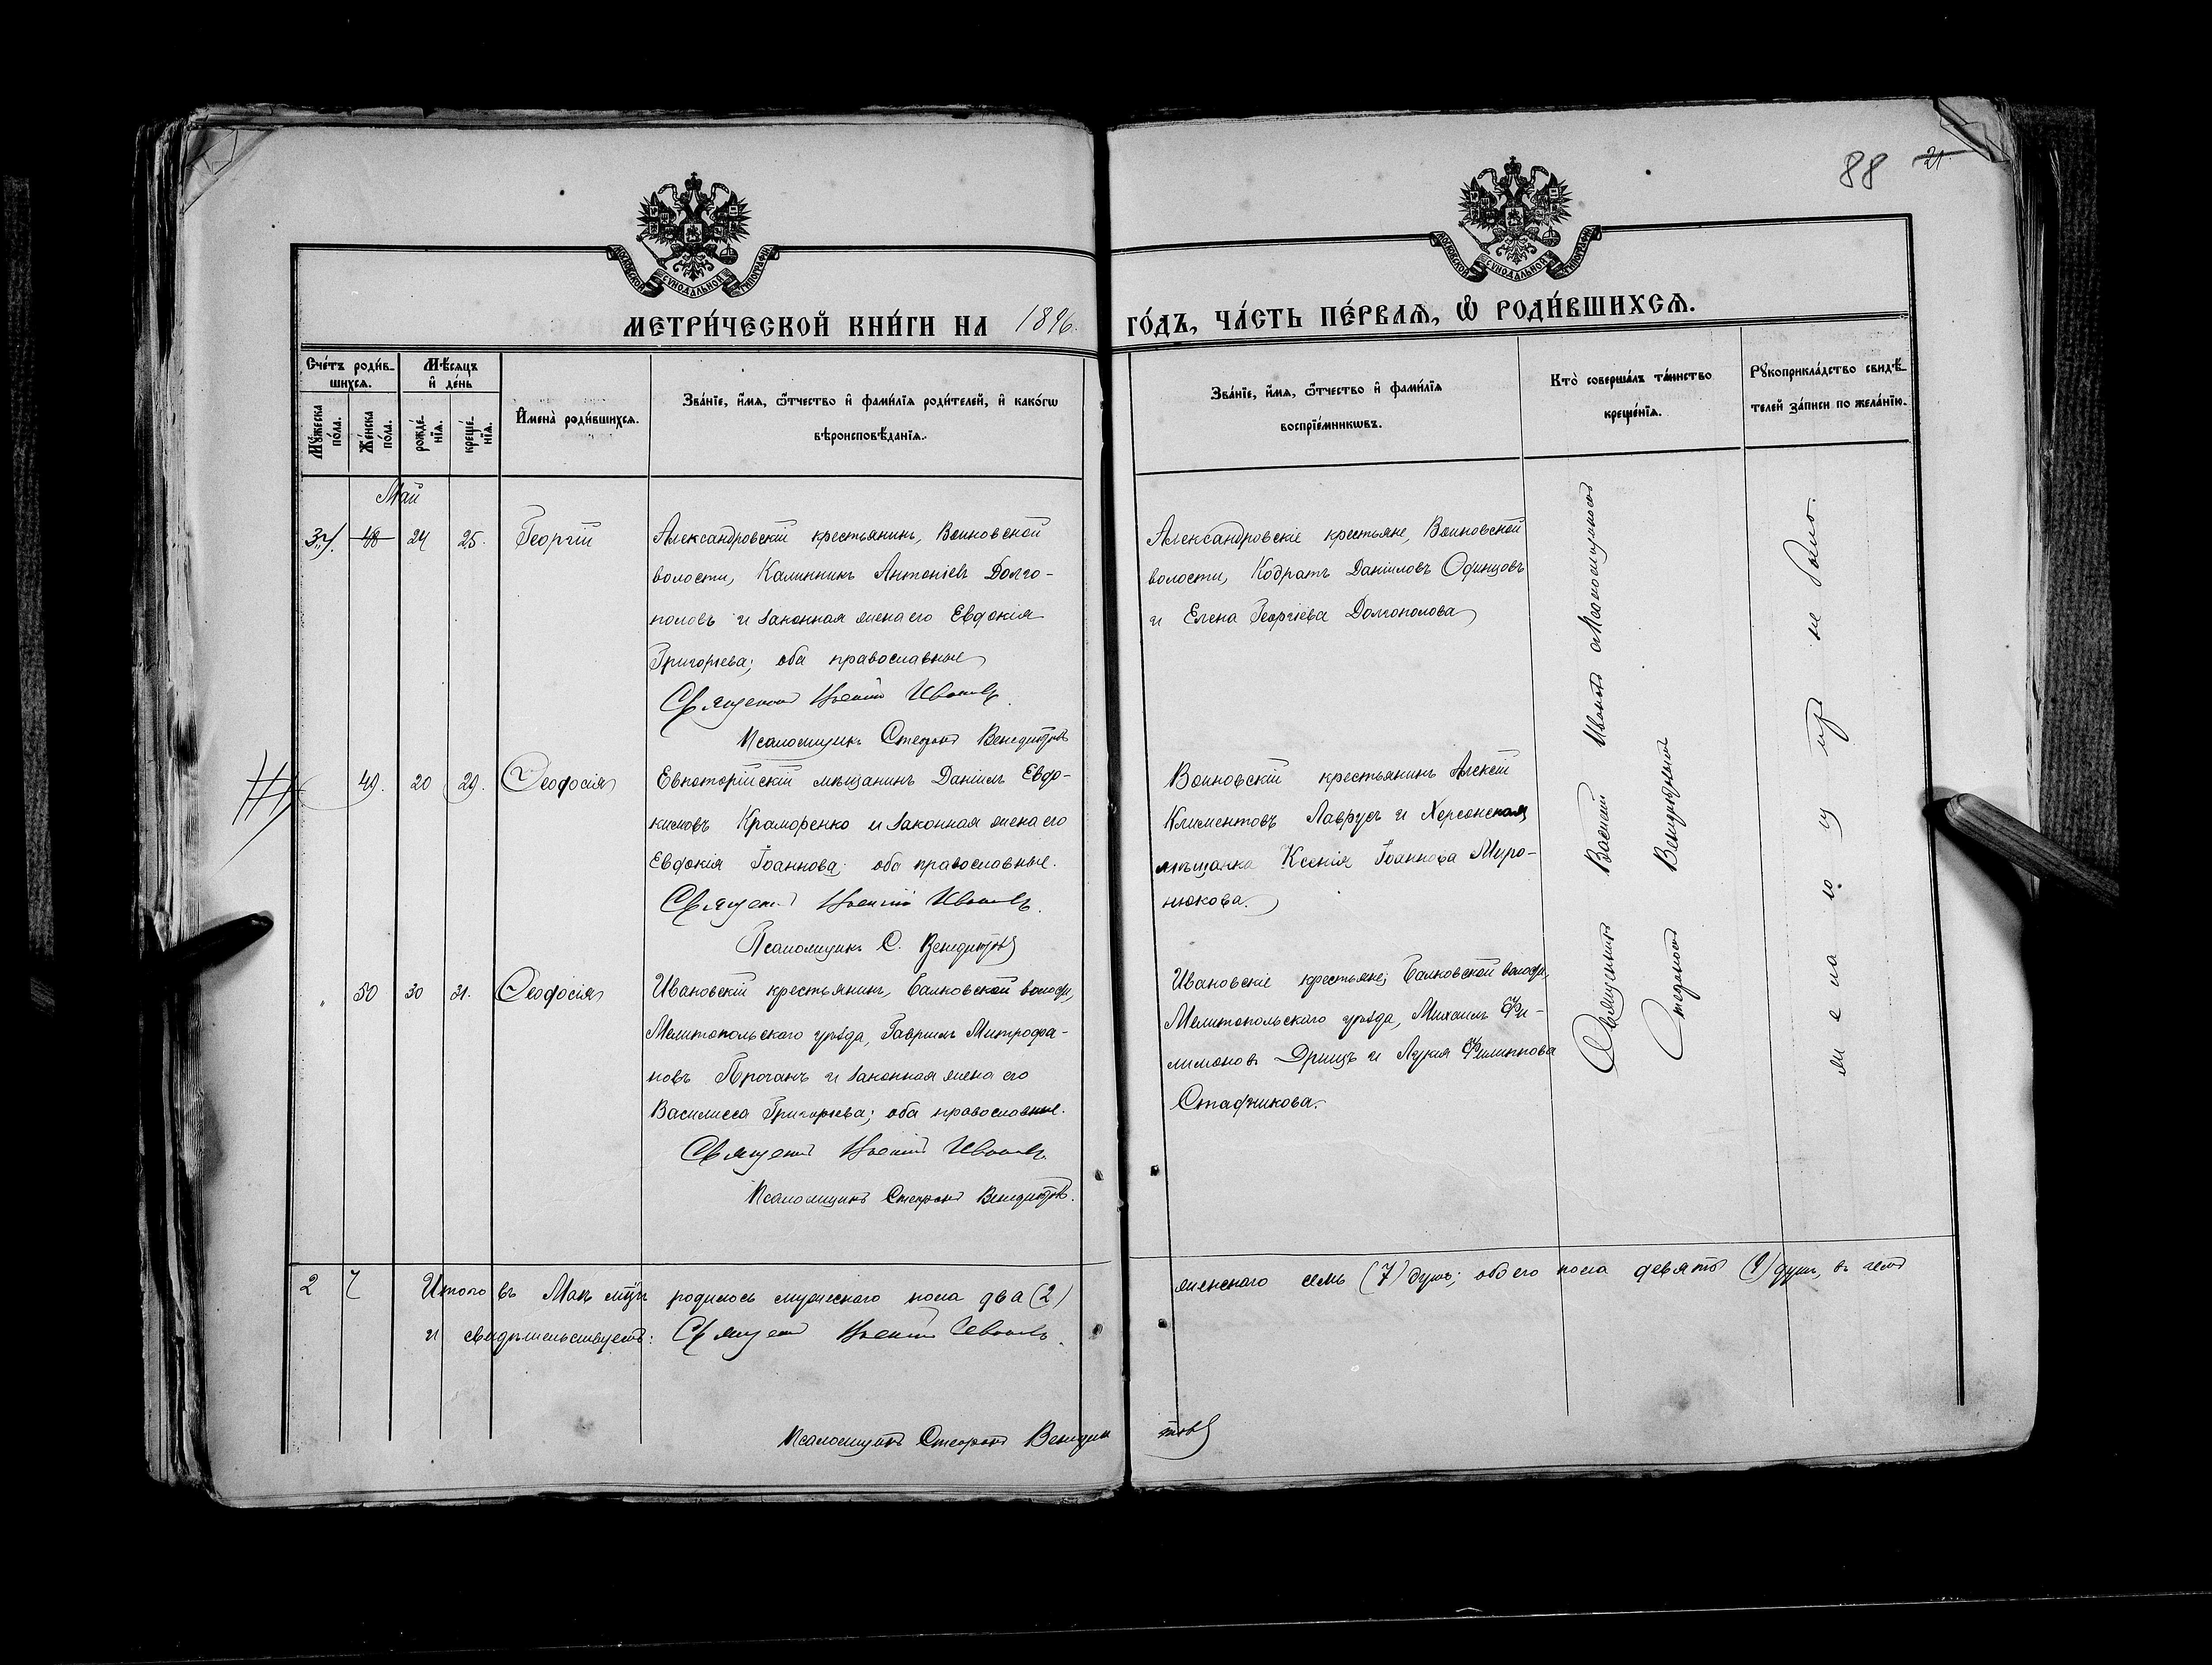 88 21.
МОСКОВСКОЙ СУНОДАЛЬНОЙ ТИПОГРАФІИ
МОСКОВСКОЙ СУНОДАЛЬНОЙ ТИПОГРАФІИ
МЕТРИ́ЧЕСКОЙ КНИ́ГИ НА 1896. ГО́ДЪ, ЧА́СТЬ ПЕ́РВАѦ, Ѡ҆ РОДИ́ВШИХСѦ.
Сче́тъ роди́в-
шихсѧ.
Мꙋ́жеска по́ла.
Же́нска по́ла.
Мѣ́сѧцъ и҆ де́нь
рожде́-нїѧ.
креще́-нїѧ.
И҆мена̀ роди́вшихсѧ.
Зва́нїе, и҆́мѧ, ѻ҆́тчество и҆ фами́лїѧ роди́телей, и҆ како́гѡ
вѣроисповѣ́данїѧ.
Зва́нїе, и҆́мѧ, ѻ҆́тчество и҆ фами́лїѧ
воспрїе́мникѡвъ.
Кто̀ соверша́лъ та́инство
креще́нїѧ.
Рꙋкоприкла́дство свидѣ́-
телей за́писи по жела́нїю.
Май
37. 48 24 25. Георгій
Александровскій крестьянинъ, Воиновской
волости, Калинникъ Антоніевъ Долго-
половъ и законная жена его Евдокія
Григорьева; оба православные
Священникъ Василій Ивановъ.
Псаломщикъ Стефанъ Венедиктовъ
Александровскіе крестьяне, Воиновской
волости, Кодратъ Даніиловъ Одинцовъ
и Елена Георгіева Долгополова
49. 20 29. Ѳеодосія
Евпаторійскій мѣщанинъ Даніилъ Евдо-
кимовъ Краморенко и законная жена его
Евдокія Іоаннова; оба православные.
Священникъ Василій Ивановъ.
Псаломщикъ С. Венедиктовъ
Воиновскій крестьянинъ Алексій
Климентовъ Лаврусь и Херсонская
мѣщанка Ксенія Іоаннова Миро-
нюкова.
50 30 31. Ѳеодосія
Ивановскій крестьянинъ, Балковской волости,
Мелитопольскаго уѣзда, Гавріилъ Митрофа-
новъ Проганъ и законная жена его
Василисса Григорьева; оба православные.
Священникъ Василій Ивановъ.
Псаломщикъ Стефанъ Венедиктовъ.
Ивановскіе крестьяне, Балковской волости,
Мелитопольскаго уѣзда, Михаилъ Фи-
лимоновъ Дрищъ и Лукія Филиппова
Стадникова.
Священникъ Василій Ивановъ
Стефанъ Венедиктовъ
желающихъ не было.
2 7 Итого въ Маѣ мцѣ родилось мужескаго пола два (2) женскаго семь (7) душъ; обоего пола девять (9) душъ, въ чемъ
и свидѣтельствуетъ: Священникъ Василій Ивановъ.
Псаломщикъ Стефанъ Венедиктовъ